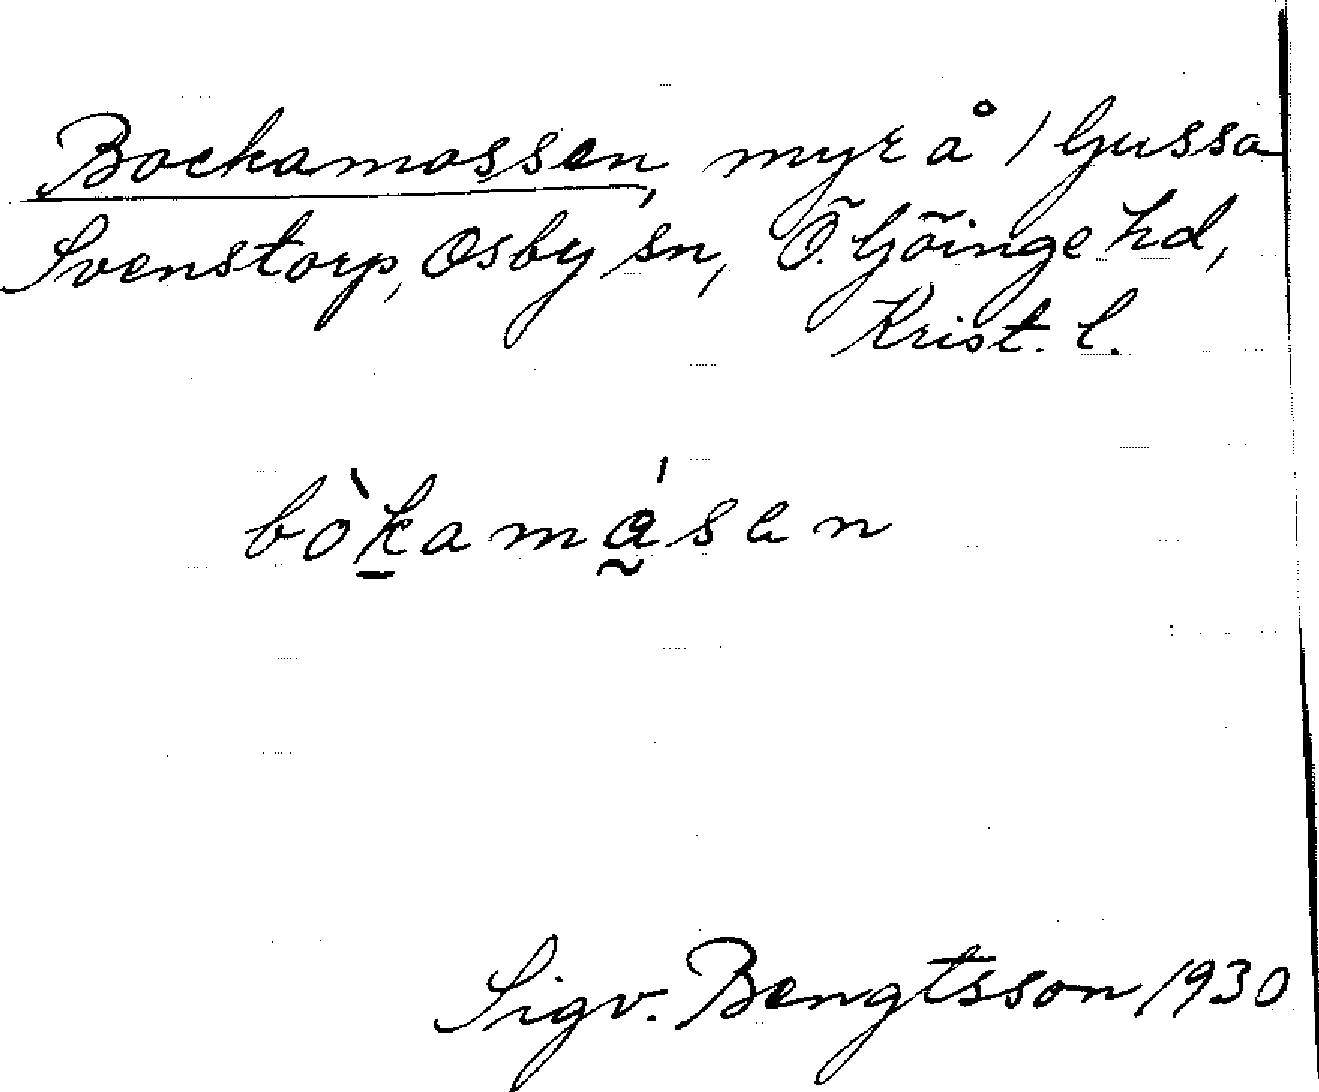 Bockamossen, myr å 1 Gussa
Svenstorp, Osby sn, Ö. Göinge hd,
Krist. l.
bòkamåsen
Sigv. Bengtsson 1930